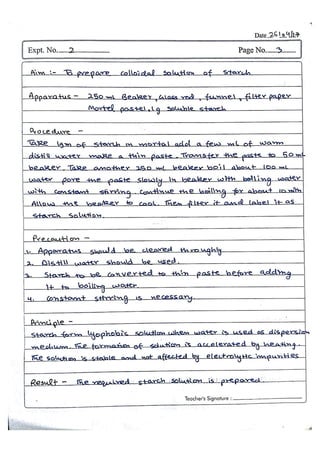 Date 26/09/17
Expt. No. 2 Page No. 3
Aim :- To prepare colloidal solution of starch
Apparatus - 250 ml Beaker, Glass rod, funnel, filter paper
Mortel pastel, 1g soluble starch
Procedure -
Take 1gm of starch in mortal add a few mL of warm
distil water make a thin paste. Transfer the paste to 50 ml
beaker. Take another 250 ml beaker boil about 100 ml
water pore the paste slowly in beaker with boiling water
with constant stirring. Continue the boiling for about 10 min
Allow the beaker to cool. Then filter it and label it as
starch solution.
Precaution -
1. Apparatus should be cleared throughly
2. Distill water should be used.
3. Starch to be converted to thin paste before adding
it to boiling water
4. Constant stirring is necessary.
Principle -
Starch form lyophobic solution when water is used as dispersion
medium. The formation of solution is accelerated by heating.
The solution is stable and not affected by electrolytic impurities
Result - The required starch solution is prepared.
Teacher's Signature :